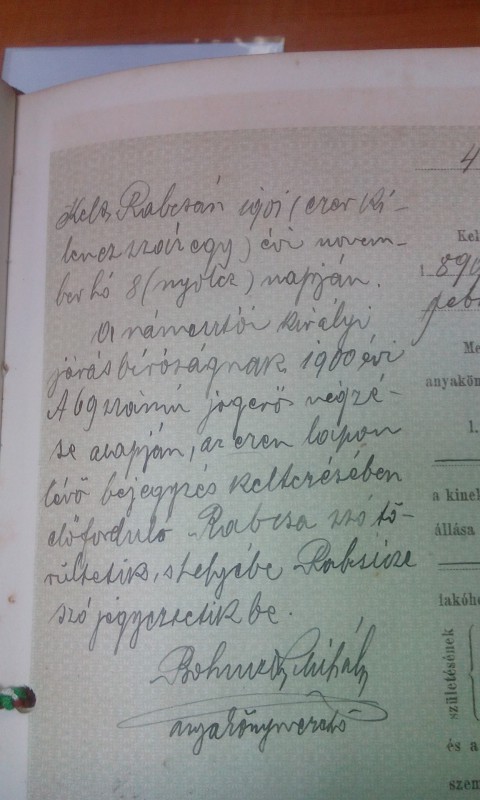 Kelt Rabcsán 1901 (ezer ki-
lenczszáz egy) évi novem-
ber hó 8 (nyolcz) napján.
A námesztói királyi
járásbíróságnak 1900 évi
A 69 számú jogerős végzé-
se alapján, az ezen lapon
lévő bejegyzés keltezésében
előforduló Rabcsa szó tö-
röltetik, s helyébe Rabcsicze
szó jegyeztetik be.
Mihály
anyakönyvvezető
4
Kel
1 890
feb
Me
anyakön
1.
a kinek
állása
lakóhe
születésének
és a
szem